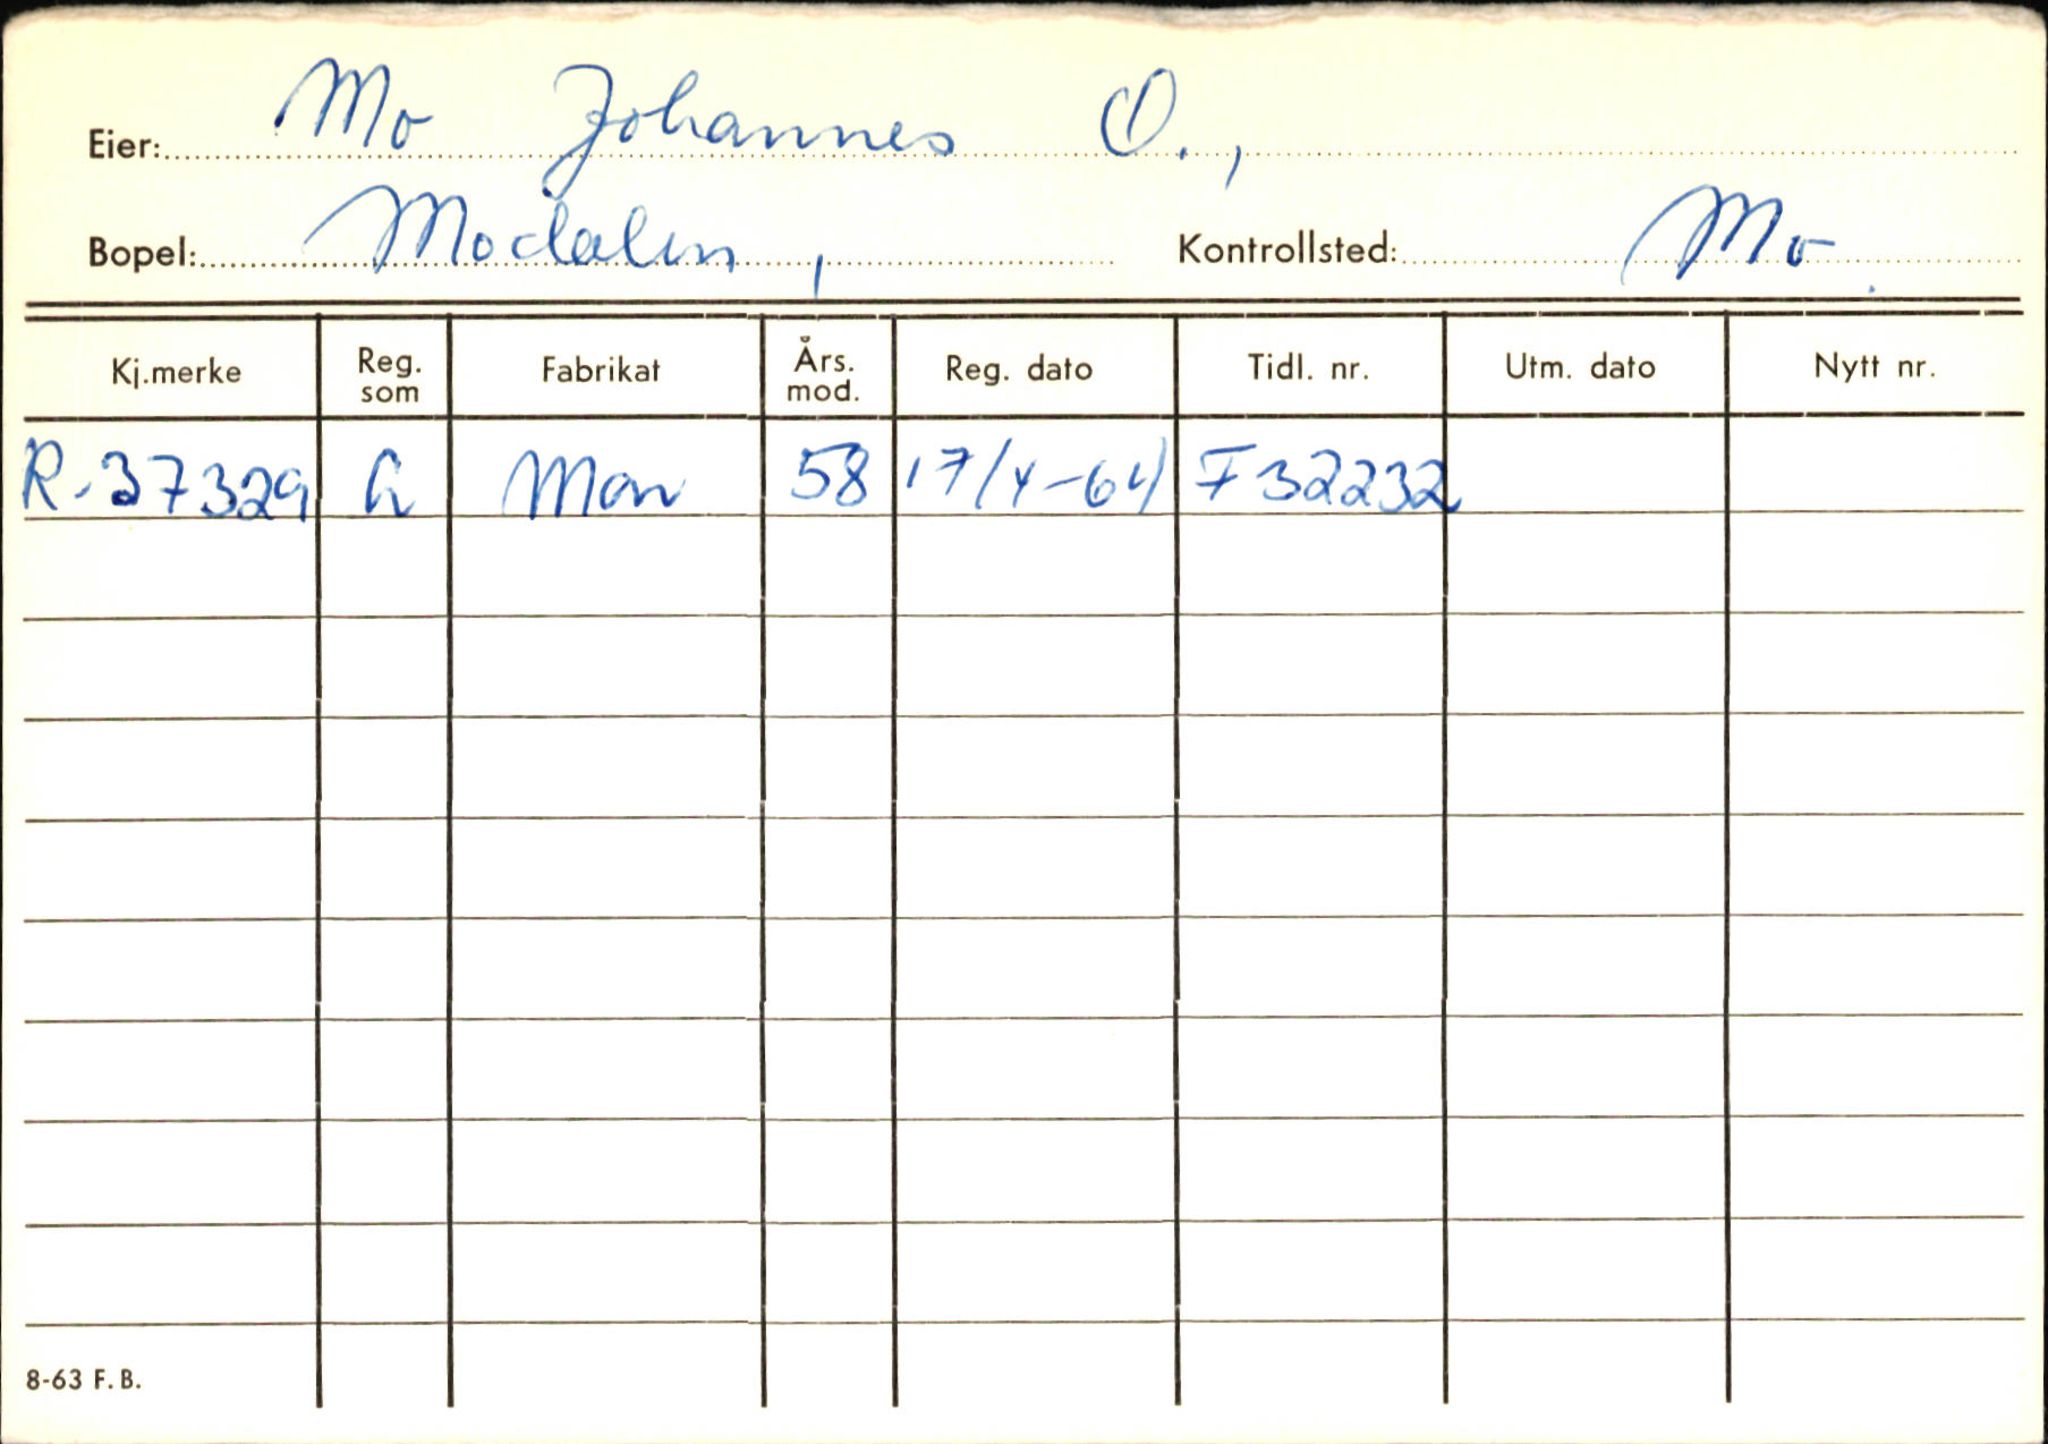 Eier: Mo Johannes O.,
Bopel: Modalen, Kontrollsted: Mo.
Kj.merke Reg. som Fabrikat Års. mod. Reg. dato Tidl. nr. Utm. dato Nytt nr.
R-37329 a Man 58 17/4-64 F32232
8-63 F.B.